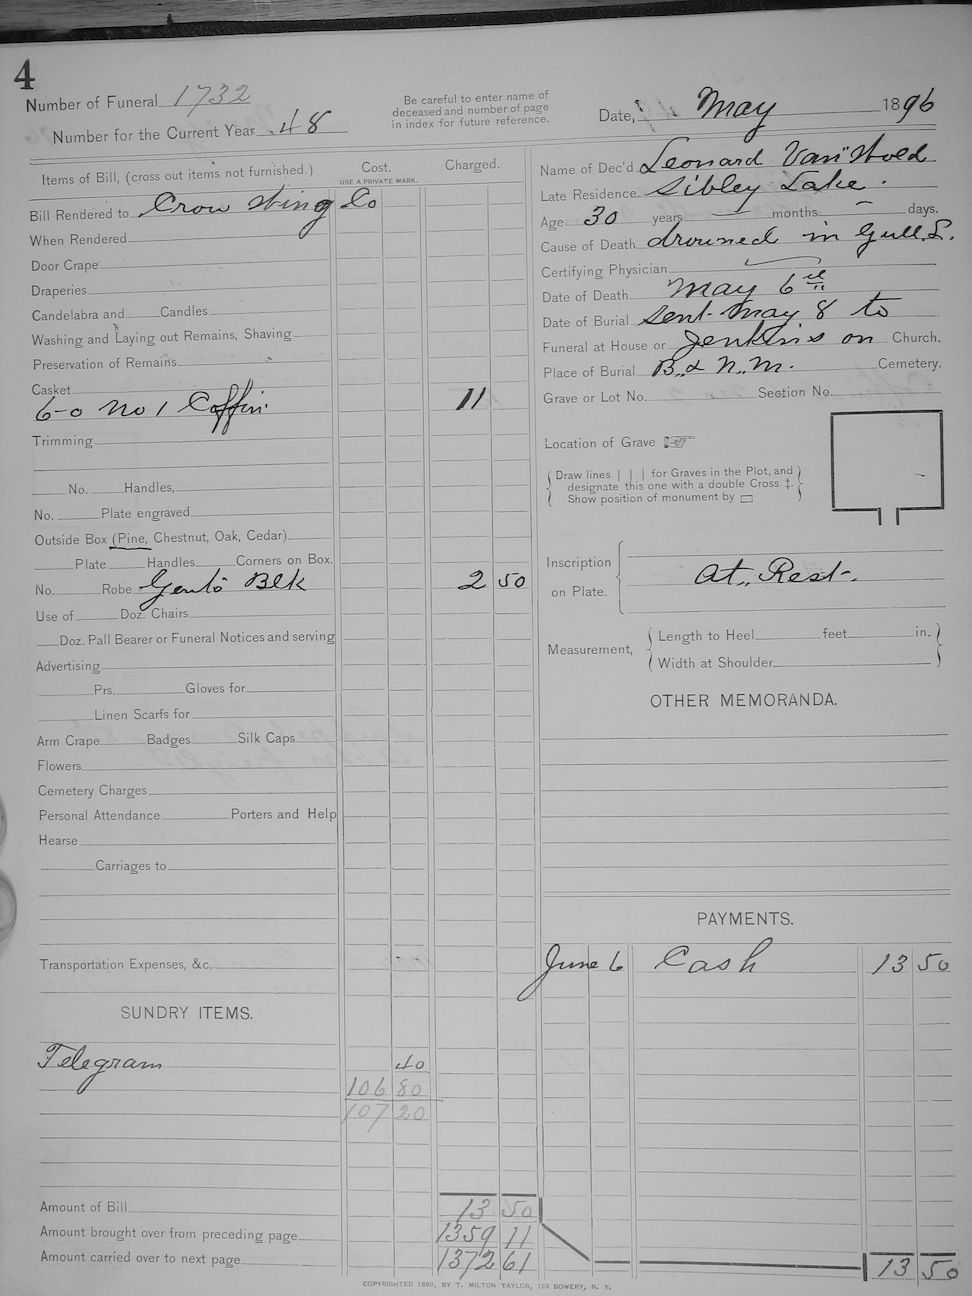 4
Number of Funeral 1732
Number for the Current Year 48
Be careful to enter name of
deceased and number of page
in index for future reference.
Date, May 1896
Items of Bill, (cross out items not furnished.)
Cost.
USE A PRIVATE MARK.
Charged.
Bill Rendered to Crow Wing Co
When Rendered
Door Crape
Draperies
Candelabra and Candles
Washing and Laying out Remains, Shaving
Preservation of Remains
Casket
6-0 No 1 Coffin 11
Trimming
No. Handles,
No. Plate engraved
Outside Box (Pine, Chestnut, Oak, Cedar)
Plate Handles Corners on Box.
No. Robe Gents Blk 2 50
Use of Doz. Chairs
Doz. Pall Bearer or Funeral Notices and serving
Advertising
Prs. Gloves for
Linen Scarfs for
Arm Crape Badges Silk Caps
Flowers
Cemetery Charges
Personal Attendance Porters and Help
Hearse
Carriages to
Transportation Expenses, &c.
SUNDRY ITEMS.
Telegram 40
106 80
107 20
Amount of Bill 13 50
Amount brought over from preceding page 1359 11
Amount carried over to next page 1372 61
Name of Dec'd Leonard
Late Residence Sibley Lake.
Age 30 years — months — days.
Cause of Death drowned in Gull L.
Certifying Physician
Date of Death May 6th
Date of Burial Sent May 8 to
Funeral at House or Jenkins on Church.
Place of Burial B. & N. M. Cemetery.
Grave or Lot No. Section No.
Location of Grave ☞
Draw lines | | | for Graves in the Plot, and
designate this one with a double Cross ‡.
Show position of monument by ▭
Inscription
on Plate.
At Rest.
Measurement,
Length to Heel feet in.
Width at Shoulder
OTHER MEMORANDA.
PAYMENTS.
June 6 Cash 13 50
13 50
COPYRIGHTED 1890, BY T. MILTON TAYLOR, 163 BOWERY, N. Y.